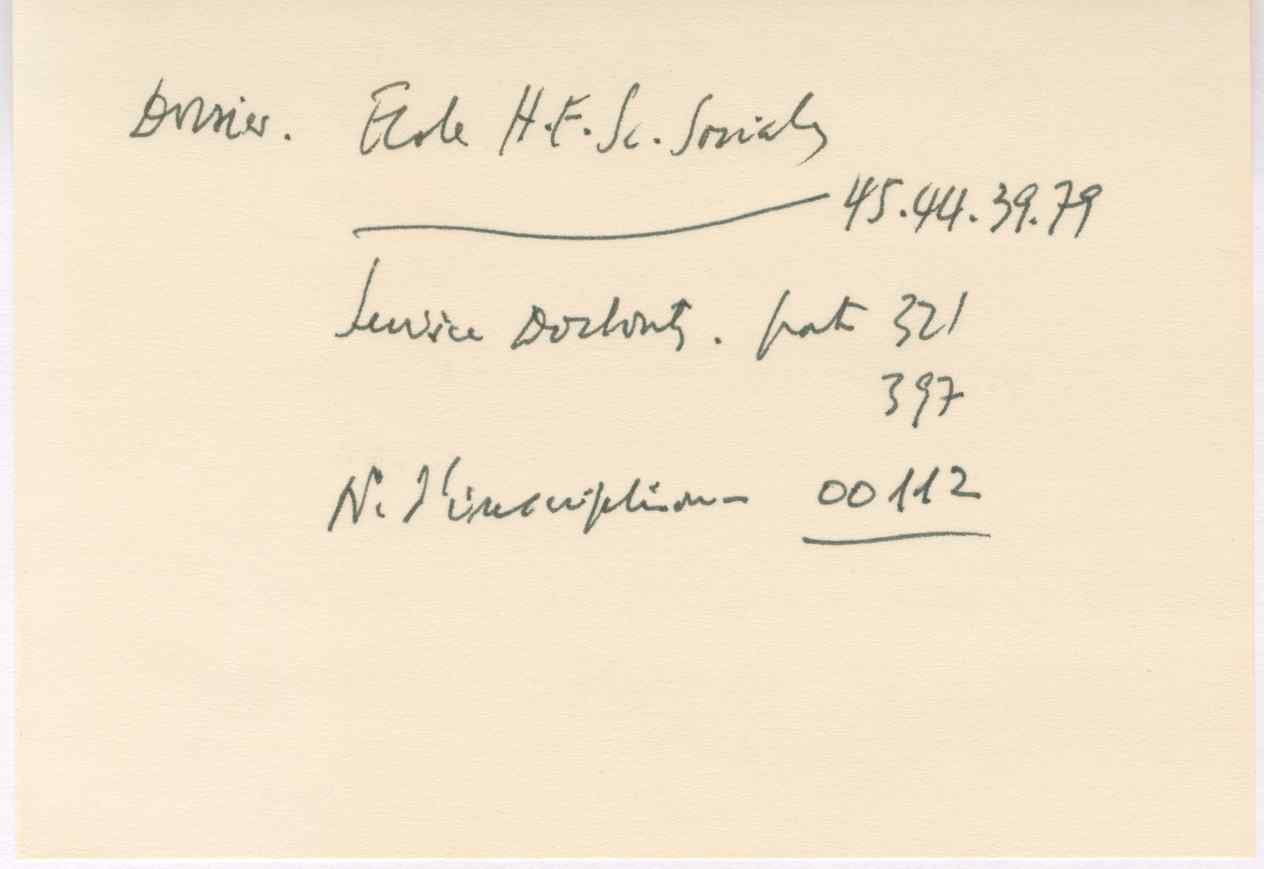 Dossier. Ecole H.E.Sc. Sociales
45.44.39.79
Service Doctorats. poste 321
397
N. d'inscription 00112